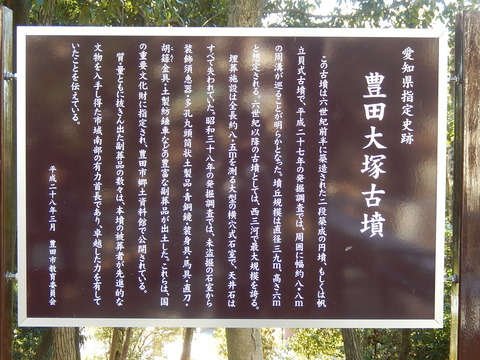 愛知県指定史跡
豊田大塚古墳
この古墳は六世紀前半に築造された二段築成の円墳、もしくは帆
立貝式古墳で、平成二十七年の発掘調査では、周囲に幅約八・八m
の周溝が巡ることが明らかとなった。墳丘規模は直径三九m、高さ六m
と想定される。六世紀以降の古墳としては、西三河で最大規模を誇る。
埋葬施設は全長約八・五mを測る大型の横穴式石室で、天井石は
すべて失われていた。昭和三十八年の発掘調査では、未盗掘の石室から
装飾須恵器・多孔丸頭筒状土製品・青銅鏡・装身具・馬具・直刀・
胡籙金具・土製紡錘車などの豊富な副葬品が出土した。これらは、国
の重要文化財に指定され、豊田市郷土資料館で公開されている。
質・量ともに抜きん出た副葬品の数々は、本墳の被葬者が先進的な
文物を入手し得た市域南部の有力首長であり、卓越した力を有して
いたことを伝えている。
平成二十八年三月 豊田市教育委員会